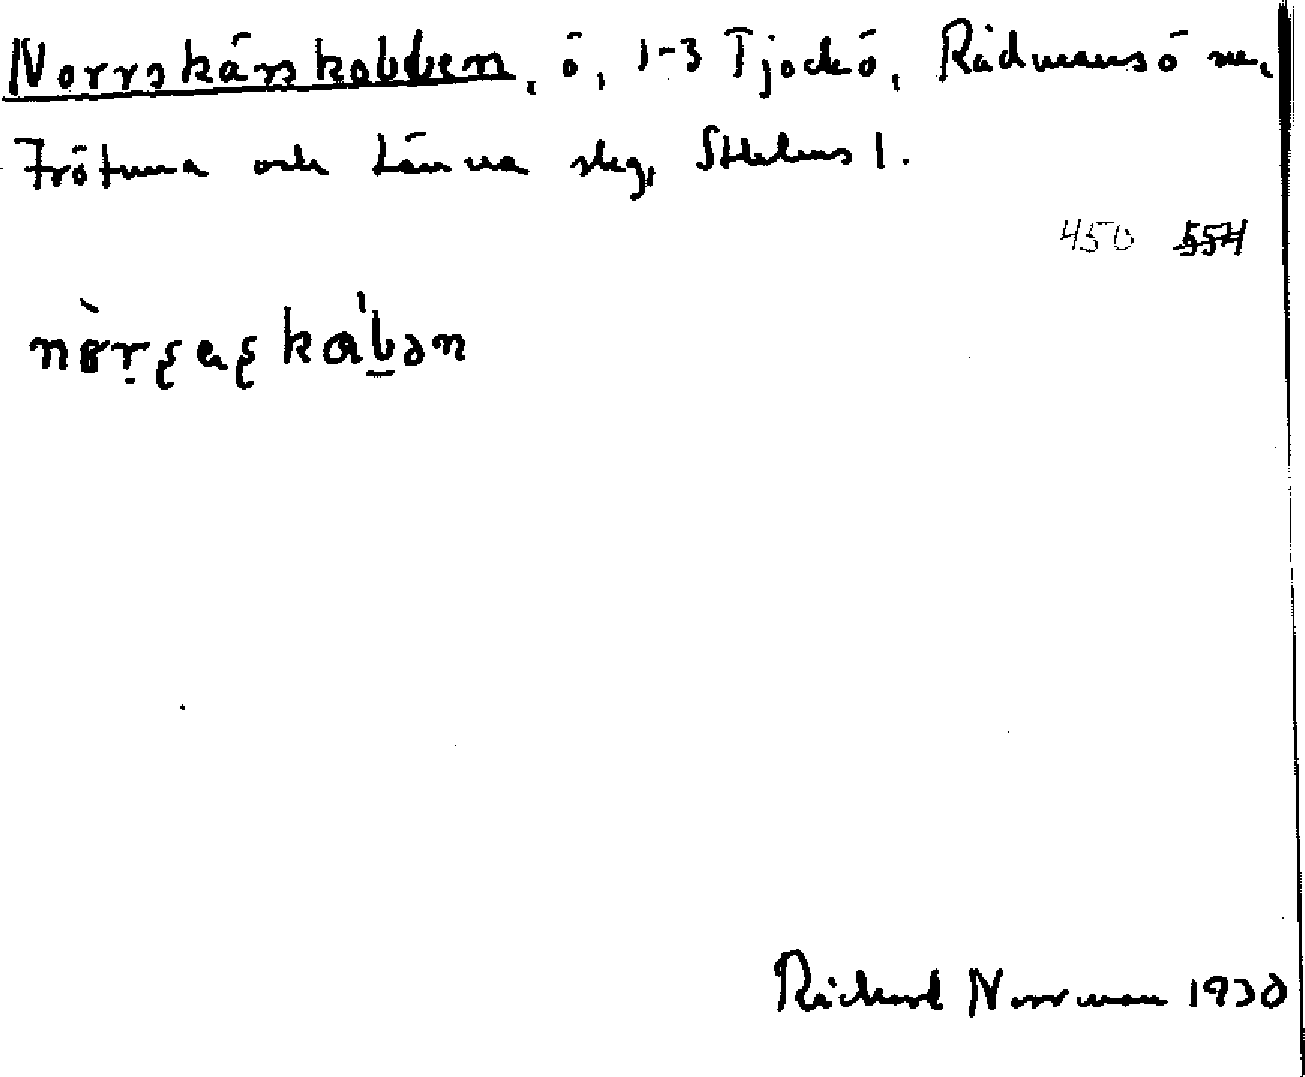 Norrskärskobben, ö, 1-3 Tjockö, Rådmansö sn,
Frötuna och Länna skg, Sthlms l.
450 554
Rickard Norrman 1930